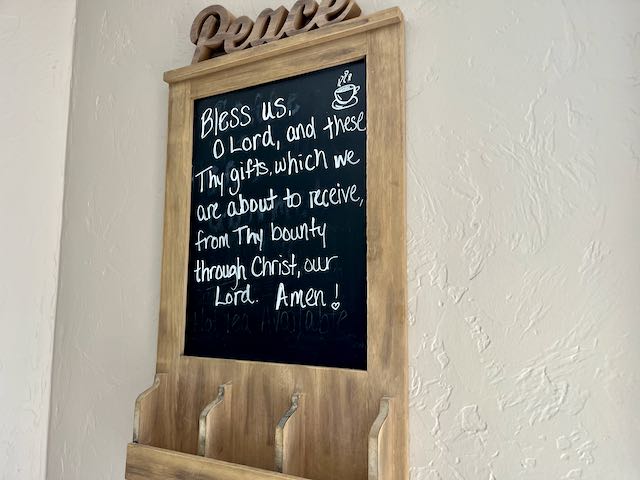 Peace
Bless us,
O Lord, and these
Thy gifts, which we
are about to receive,
from Thy bounty
through Christ, our
Lord. Amen!
Available